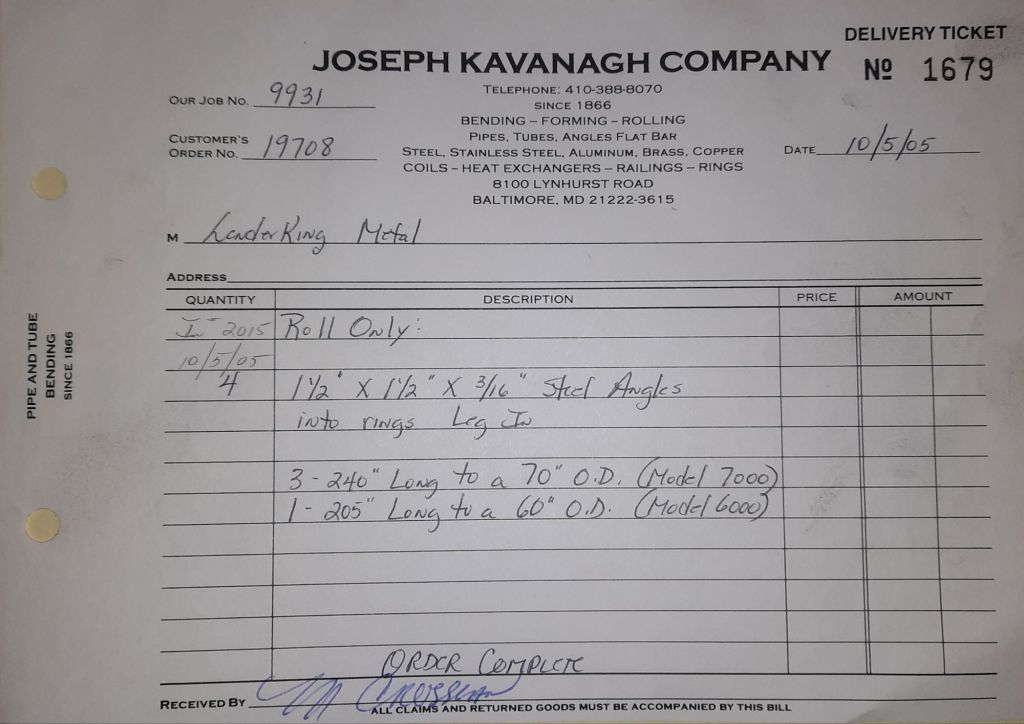 DELIVERY TICKET
JOSEPH KAVANAGH COMPANY
Nº 1679
TELEPHONE: 410-388-8070
SINCE 1866
BENDING – FORMING – ROLLING
PIPES, TUBES, ANGLES FLAT BAR
STEEL, STAINLESS STEEL, ALUMINUM, BRASS, COPPER
COILS – HEAT EXCHANGERS – RAILINGS – RINGS
8100 LYNHURST ROAD
BALTIMORE, MD 21222-3615
OUR JOB NO. 9931
CUSTOMER'S
ORDER NO. 19708
DATE 10/5/05
M LenderKing Metal
ADDRESS
QUANTITY DESCRIPTION PRICE AMOUNT
I-2015 Roll Only:
10/5/05
4 1 1/2" X 1 1/2" X 3/16" Steel Angles
into rings Leg In
3 - 240" Long to a 70" O.D. (Model 7000)
1 - 205" Long to a 60" O.D. (Model 6000)
ORDER COMPLETE
RECEIVED BY
ALL CLAIMS AND RETURNED GOODS MUST BE ACCOMPANIED BY THIS BILL
PIPE AND TUBE
BENDING
SINCE 1866